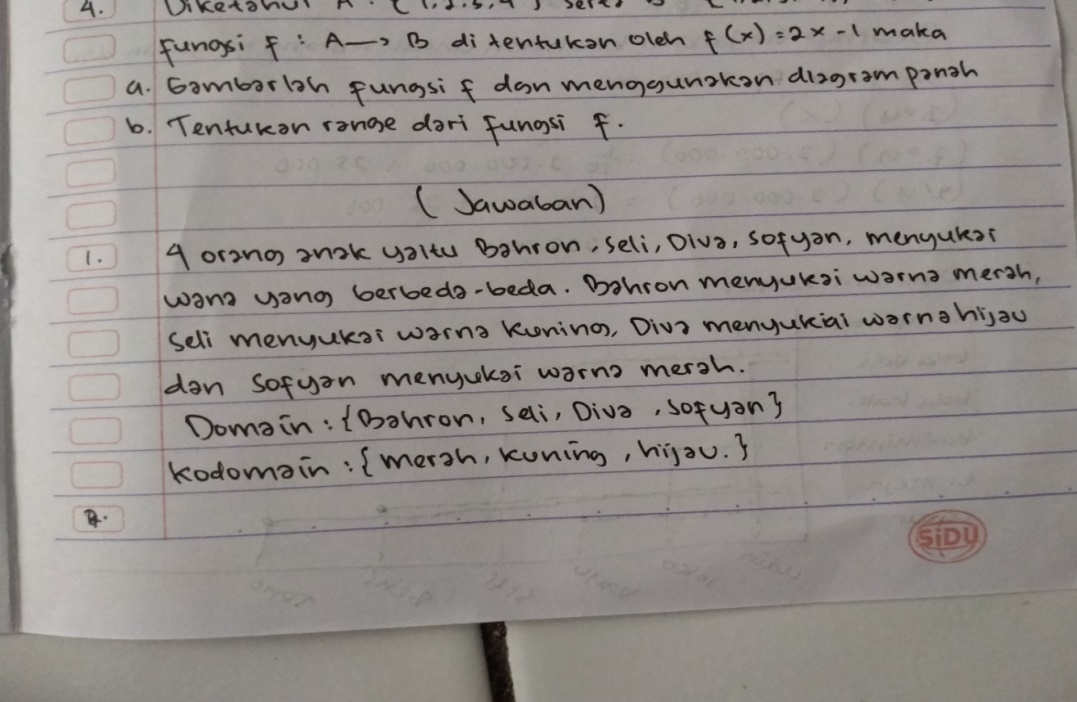 4. Diketahui A : { 1,2,3,4 } serta B {
fungsi f : A → B di tentukan oleh f(x) = 2x - 1 maka
a. Gambarlah fungsi f dan menggunakan diagram panah
b. Tentukan range dari fungsi f.
( Jawaban )
1. 4 orang anak yaitu Bahron, Seli, Diva, Sofyan, menyukai
wana yang berbeda-beda. Bahron menyukai warna merah,
Seli menyukai warna kuning, Diva menyukiai warna hijau
dan Sofyan menyukai warna merah.
Domain : { Bahron, Seli, Diva, Sofyan }
Kodomain : { merah, kuning, hijau. }
2.
SiDU